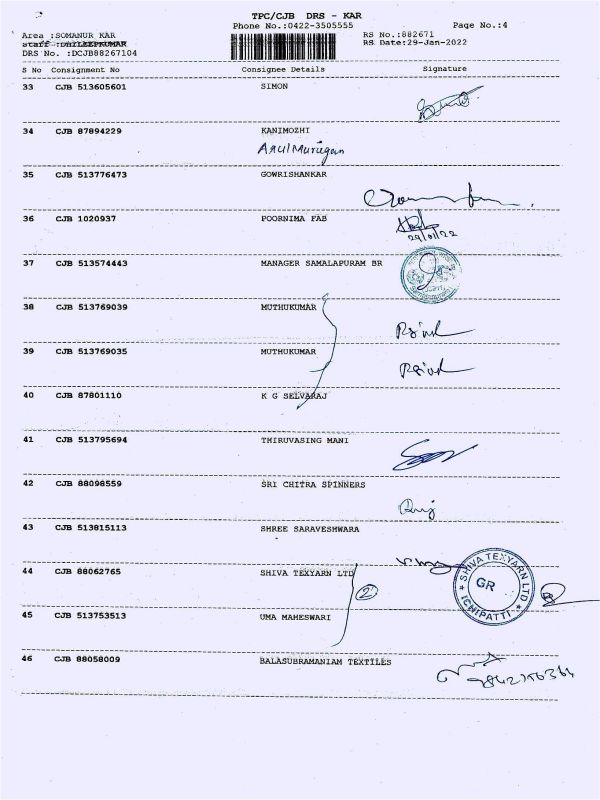 TPC/CJB DRS - KAR
Phone No.:0422-3505555 Page No.:4
Area :SOMANUR KAR RS No.:882671
staff :DHILEEPKUMAR RS Date:29-Jan-2022
DRS No. :DCJB88267104
S No Consignment No Consignee Details Signature
33 CJB 513605601 SIMON
34 CJB 87894229 KANIMOZHI
ArulMurugan
35 CJB 513776473 GOWRISHANKAR
36 CJB 1020937 POORNIMA FAB
29/01/22
37 CJB 513574443 MANAGER SAMALAPURAM BR
38 CJB 513769039 MUTHUKUMAR
39 CJB 513769035 MUTHUKUMAR
40 CJB 87801110 K G SELVARAJ
41 CJB 513795694 THIRUVASING MANI
42 CJB 88098559 SRI CHITRA SPINNERS
43 CJB 513815113 SHREE SARAVESHWARA
44 CJB 88062765 SHIVA TEXYARN LTD
2
SHIVA TEXYARN LTD
GR
ICHIPATTI
45 CJB 513753513 UMA MAHESWARI
46 CJB 88058009 BALASUBRAMANIAM TEXTILES